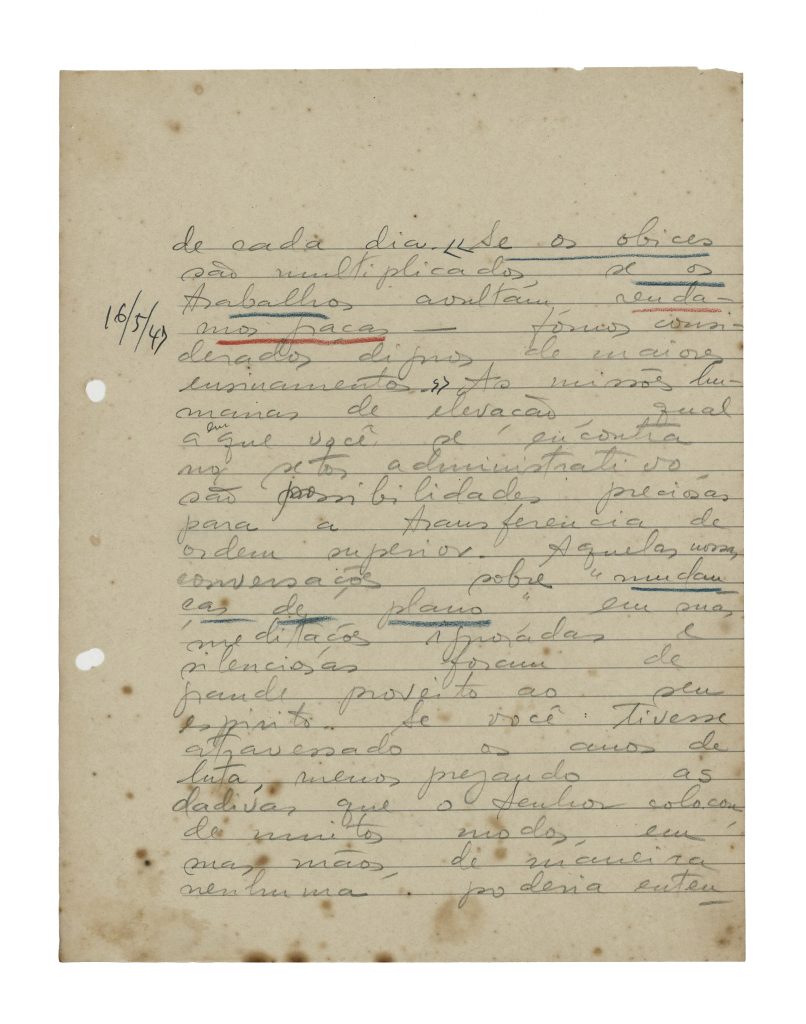 de cada dia. << Se os obices
são multiplicados, se os
trabalhos avultam renda-
16/5/47
mos graças — fômos consi-
derados dignos de maiores
ensinamentos. >> As missões hu-
manas de elevação qual
a em que você se encontra
no setor administrativo
são possibilidades preciosas
para a transferencia de
ordem superior. Aquelas nossas
conversações sobre "mudan
ças de plano" em suas
meditações ignoradas e
silenciosas foram de
grande proveito ao seu
espirito. Se você tivesse
atravessado os anos de
luta, menosprezando as
dadivas que o Senhor colocou
de muitos modos, em
suas mãos, de maneira
nenhuma poderia enten